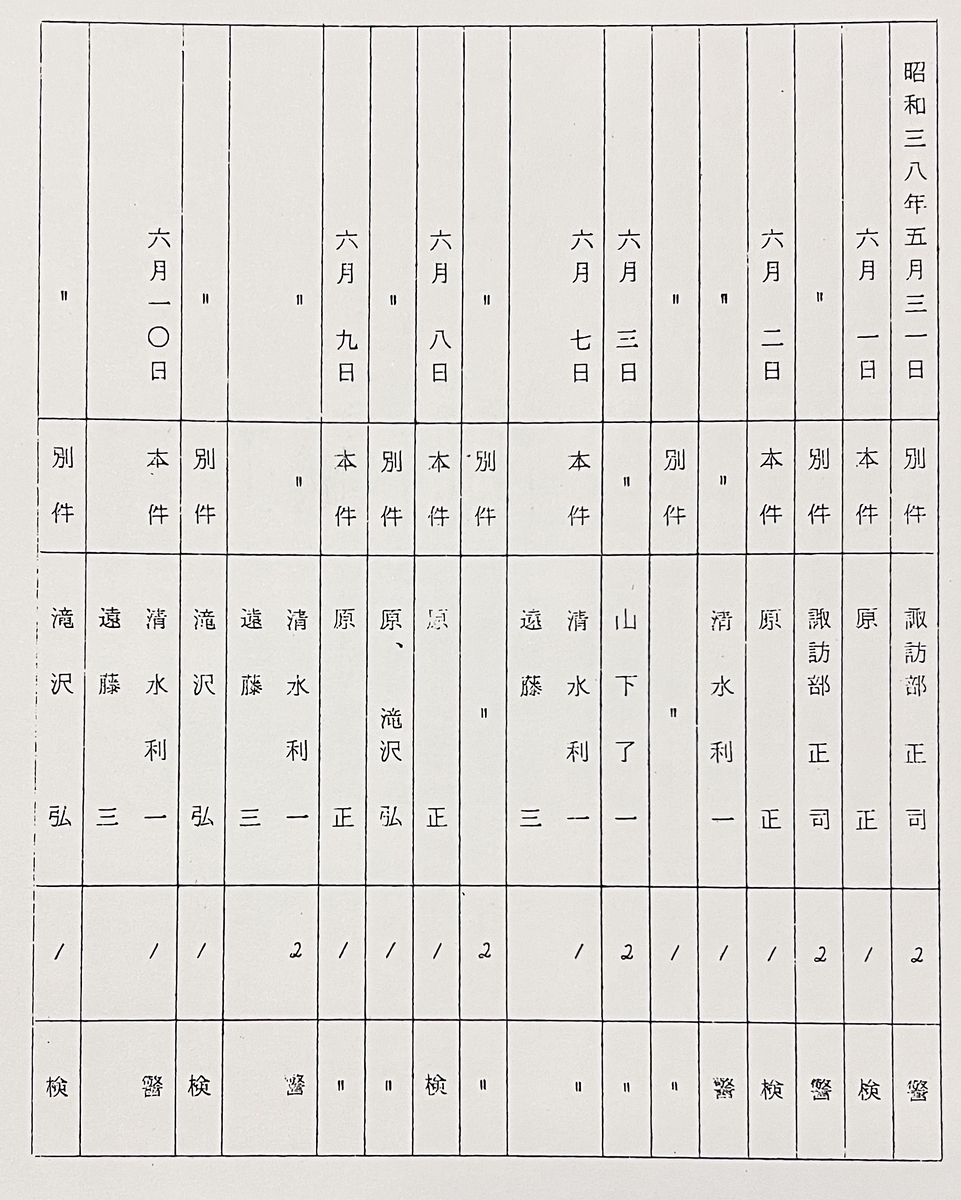 昭和三八年五月三一日 別件 諏訪部正司 2 警
六月一日 本件 原正 1 検
〃 別件 諏訪部正司 2 警
六月二日 本件 原正 1 検
〃 〃 清水利一 1 警
〃 別件 〃 1 〃
六月三日 〃 山下了一 2 〃
六月七日 本件 清水利一 1 〃
遠藤三
〃 別件 〃 2 〃
六月八日 本件 原正 1 検
〃 別件 原、滝沢弘 1 〃
六月九日 本件 原正 1 〃
〃 〃 清水利一 2 警
遠藤三
〃 別件 滝沢弘 1 検
六月一〇日 本件 清水利一 1 警
遠藤三
〃 別件 滝沢弘 1 検